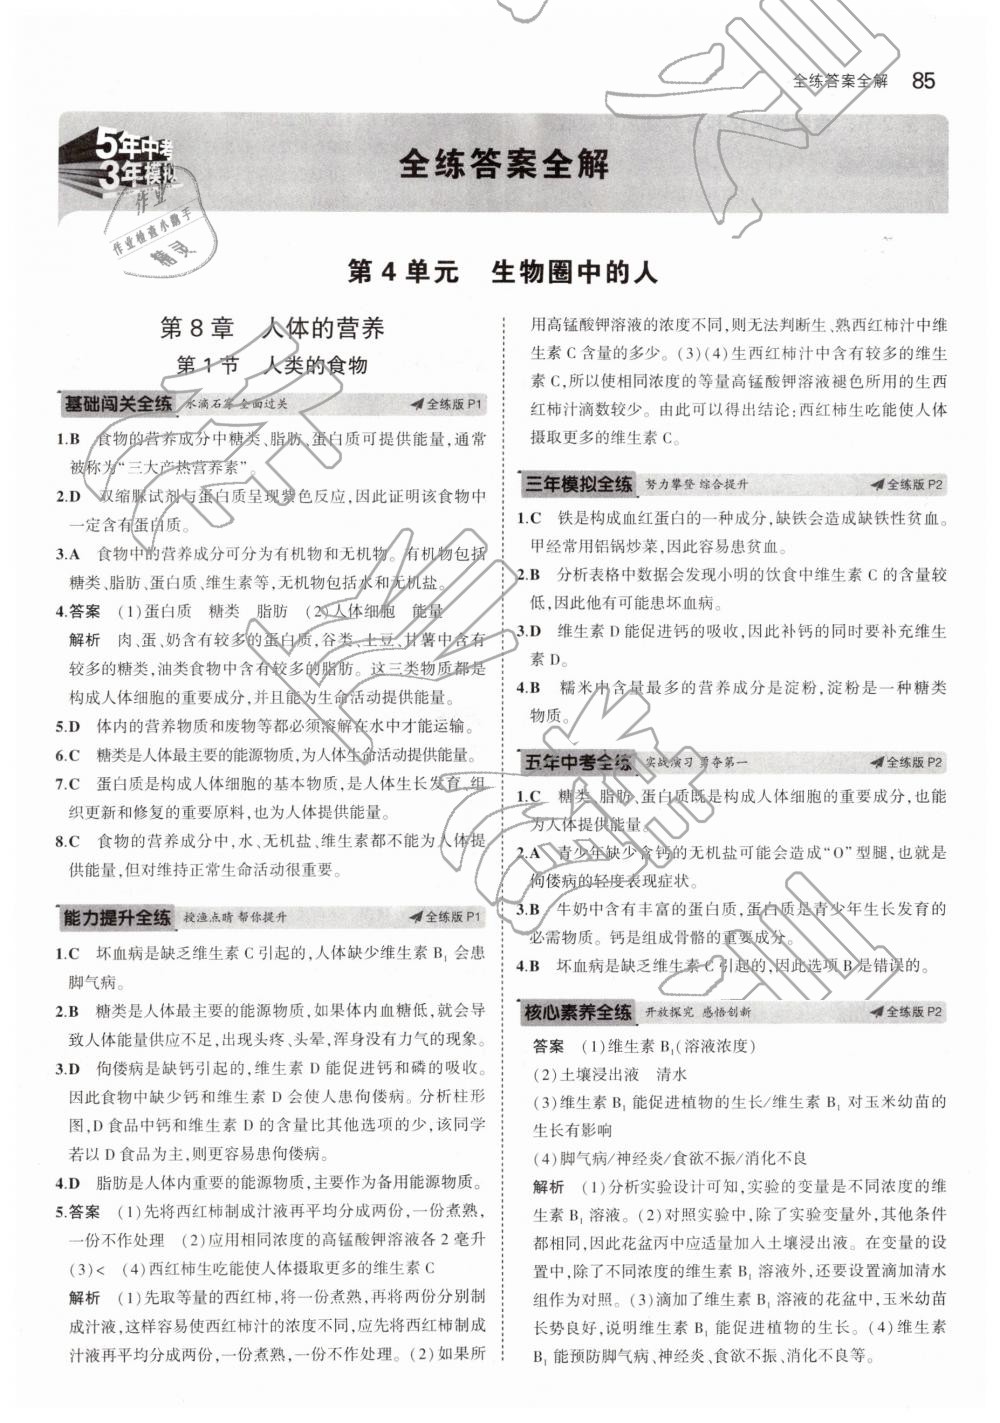 全练答案全解 85
5年中考
3年模拟
作业
作业检查小助手
精灵
全练答案全解
第4单元 生物圈中的人
第8章 人体的营养
第1节 人类的食物
基础闯关全练 水滴石穿 全面过关 全练版P1
1.B 食物的营养成分中糖类、脂肪、蛋白质可提供能量,通常
被称为“三大产热营养素”。
2.D 双缩脲试剂与蛋白质呈现紫色反应,因此证明该食物中
一定含有蛋白质。
3.A 食物中的营养成分可分为有机物和无机物。有机物包括
糖类、脂肪、蛋白质、维生素等,无机物包括水和无机盐。
4.答案 (1)蛋白质 糖类 脂肪 (2)人体细胞 能量
解析 肉、蛋、奶含有较多的蛋白质,谷类、土豆、甘薯中含有
较多的糖类,油类食物中含有较多的脂肪。这三类物质都是
构成人体细胞的重要成分,并且能为生命活动提供能量。
5.D 体内的营养物质和废物等都必须溶解在水中才能运输。
6.C 糖类是人体最主要的能源物质,为人体生命活动提供能量。
7.C 蛋白质是构成人体细胞的基本物质,是人体生长发育、组
织更新和修复的重要原料,也为人体提供能量。
8.C 食物的营养成分中,水、无机盐、维生素都不能为人体提
供能量,但对维持正常生命活动很重要。
能力提升全练 授渔点睛 帮你提升 全练版P1
1.C 坏血病是缺乏维生素C引起的,人体缺少维生素B₁会患
脚气病。
2.B 糖类是人体最主要的能源物质,如果体内血糖低,就会导
致人体能量供应不足,出现头疼、头晕,浑身没有力气的现象。
3.D 佝偻病是缺钙引起的,维生素D能促进钙和磷的吸收。
因此食物中缺少钙和维生素D会使人患佝偻病。分析柱形
图,D食品中钙和维生素D的含量比其他选项的少,该同学
若以D食品为主,则更容易患佝偻病。
4.D 脂肪是人体内重要的能源物质,主要作为备用能源物质。
5.答案 (1)先将西红柿制成汁液再平均分成两份,一份煮熟,
一份不作处理 (2)应用相同浓度的高锰酸钾溶液各2毫升
(3)< (4)西红柿生吃能使人体摄取更多的维生素C
解析 (1)先取等量的西红柿,将一份煮熟,再将两份分别制
成汁液,这样容易使西红柿汁的浓度不同,应先将西红柿制成
汁液再平均分成两份,一份煮熟,一份不作处理。(2)如果所
用高锰酸钾溶液的浓度不同,则无法判断生、熟西红柿汁中维
生素C含量的多少。(3)(4)生西红柿汁中含有较多的维生
素C,所以使相同浓度的等量高锰酸钾溶液褪色所用的生西
红柿汁滴数较少。由此可以得出结论:西红柿生吃能使人体
摄取更多的维生素C。
三年模拟全练 努力攀登 综合提升 全练版P2
1.C 铁是构成血红蛋白的一种成分,缺铁会造成缺铁性贫血。
甲经常用铝锅炒菜,因此容易患贫血。
2.B 分析表格中数据会发现小明的饮食中维生素C的含量较
低,因此他有可能患坏血病。
3.D 维生素D能促进钙的吸收,因此补钙的同时要补充维生
素D。
4.B 糯米中含量最多的营养成分是淀粉,淀粉是一种糖类
物质。
五年中考全练 实战演习 勇夺第一 全练版P2
1.C 糖类、脂肪、蛋白质既是构成人体细胞的重要成分,也能
为人体提供能量。
2.A 青少年缺少含钙的无机盐可能会造成“O”型腿,也就是
佝偻病的轻度表现症状。
3.B 牛奶中含有丰富的蛋白质,蛋白质是青少年生长发育的
必需物质。钙是组成骨骼的重要成分。
4.B 坏血病是缺乏维生素C引起的,因此选项B是错误的。
核心素养全练 开放探究 感悟创新 全练版P2
答案 (1)维生素B₁(溶液浓度)
(2)土壤浸出液 清水
(3)维生素B₁能促进植物的生长/维生素B₁对玉米幼苗的
生长有影响
(4)脚气病/神经炎/食欲不振/消化不良
解析 (1)分析实验设计可知,实验的变量是不同浓度的维
生素B₁溶液。(2)对照实验中,除了实验变量外,其他条件
都相同,因此花盆丙中应适量加入土壤浸出液。在变量的设
置中,除了不同浓度的维生素B₁溶液外,还要设置滴加清水
组作为对照。(3)滴加了维生素B₁溶液的花盆中,玉米幼苗
长势良好,说明维生素B₁能促进植物的生长。(4)维生素
B₁能预防脚气病、神经炎、食欲不振、消化不良等。